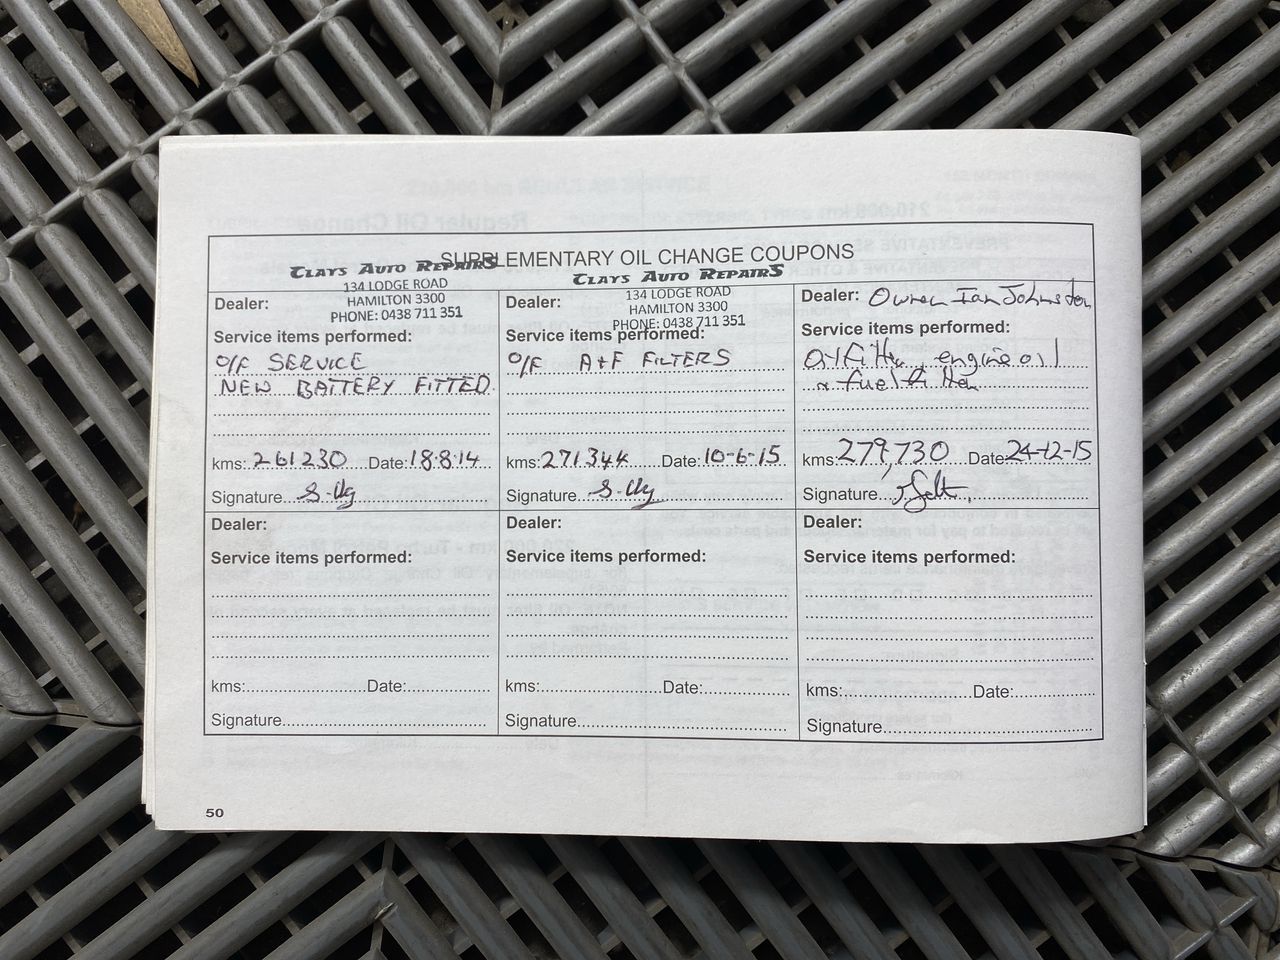 SUPPLEMENTARY OIL CHANGE COUPONS
CLAYS AUTO REPAIRS
134 LODGE ROAD
HAMILTON 3300
PHONE: 0438 711 351
Dealer:
Service items performed:
O/F SERVICE
NEW BATTERY FITTED
kms: 261230 Date: 18.8.14
Signature
CLAYS AUTO REPAIRS
134 LODGE ROAD
HAMILTON 3300
PHONE: 0438 711 351
Dealer:
Service items performed:
O/F A+F FILTERS
kms: 271344 Date: 10-6-15
Signature
Dealer: Owner Ian Johnston
Service items performed:
Oil filter, engine oil
fuel filter
kms: 279,730 Date: 24-12-15
Signature
Dealer:
Service items performed:
kms: Date:
Signature
Dealer:
Service items performed:
kms: Date:
Signature
Dealer:
Service items performed:
kms: Date:
Signature
50